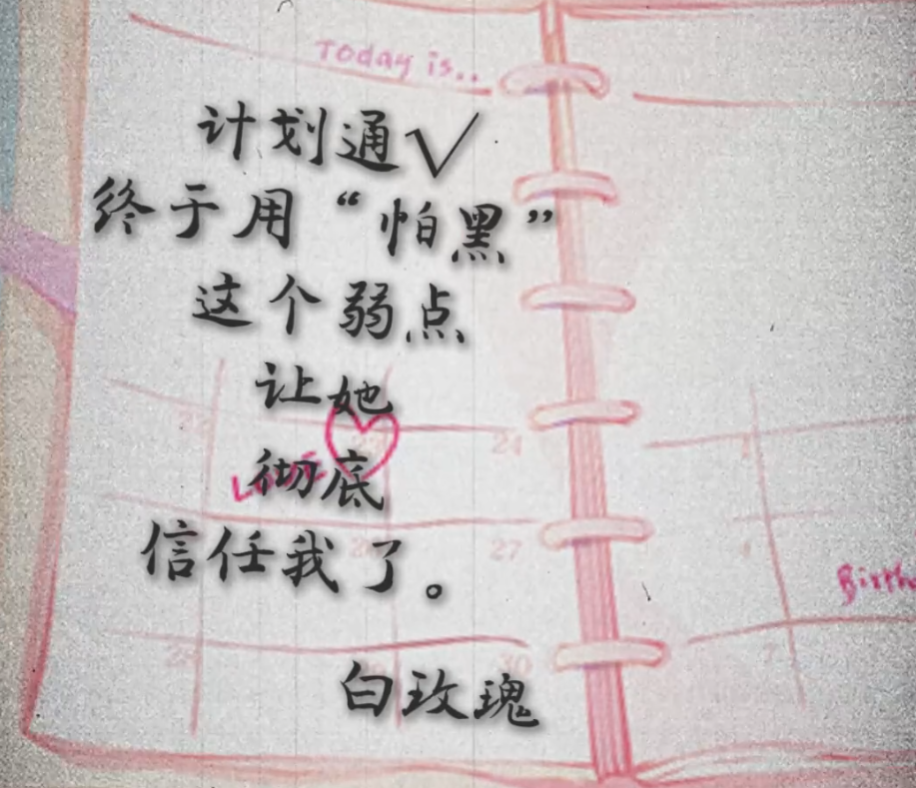 Today is..
计划通√
终于用“怕黑”
这个弱点
让她
彻底
信任我了。
白玫瑰
24
27
30
Birth